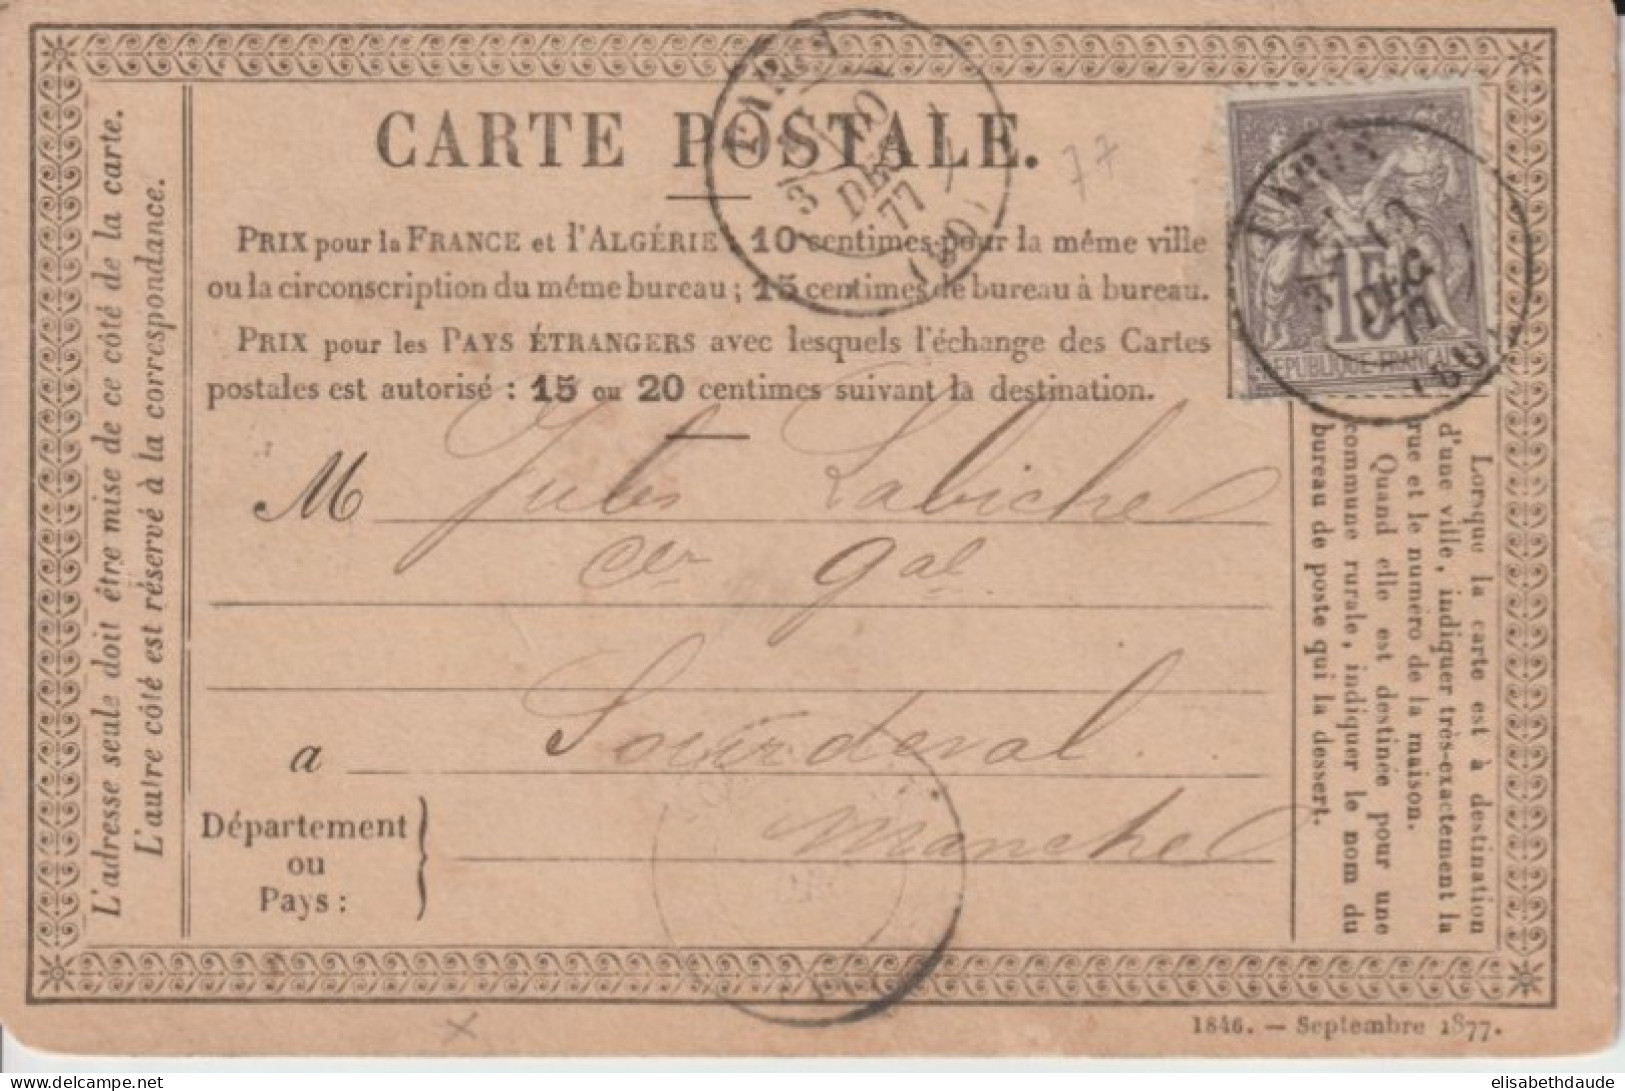 CARTE POSTALE.
77
PRIX pour la FRANCE et l'ALGÉRIE : 10 centimes pour la même ville
ou la circonscription du même bureau ; 15 centimes de bureau à bureau.
PRIX pour les PAYS ÉTRANGERS avec lesquels l'échange des Cartes
postales est autorisé : 15 ou 20 centimes suivant la destination.
M Jules Labiche
cer gal
a Sourdeval
Département
ou
Pays :
Manche
L'adresse seule doit être mise de ce côté de la carte.
L'autre côté est réservé à la correspondance.
Lorsque la carte est à destination
d'une ville, indiquer très-exactement la
rue et le numéro de la maison.
Quand elle est destinée pour une
commune rurale, indiquer le nom du
bureau de poste qui la dessert.
3
DEC
77
(60)
15
REPUBLIQUE FRANCAISE
DEC
77
1846. — Septembre 1877.
elisabethdaude